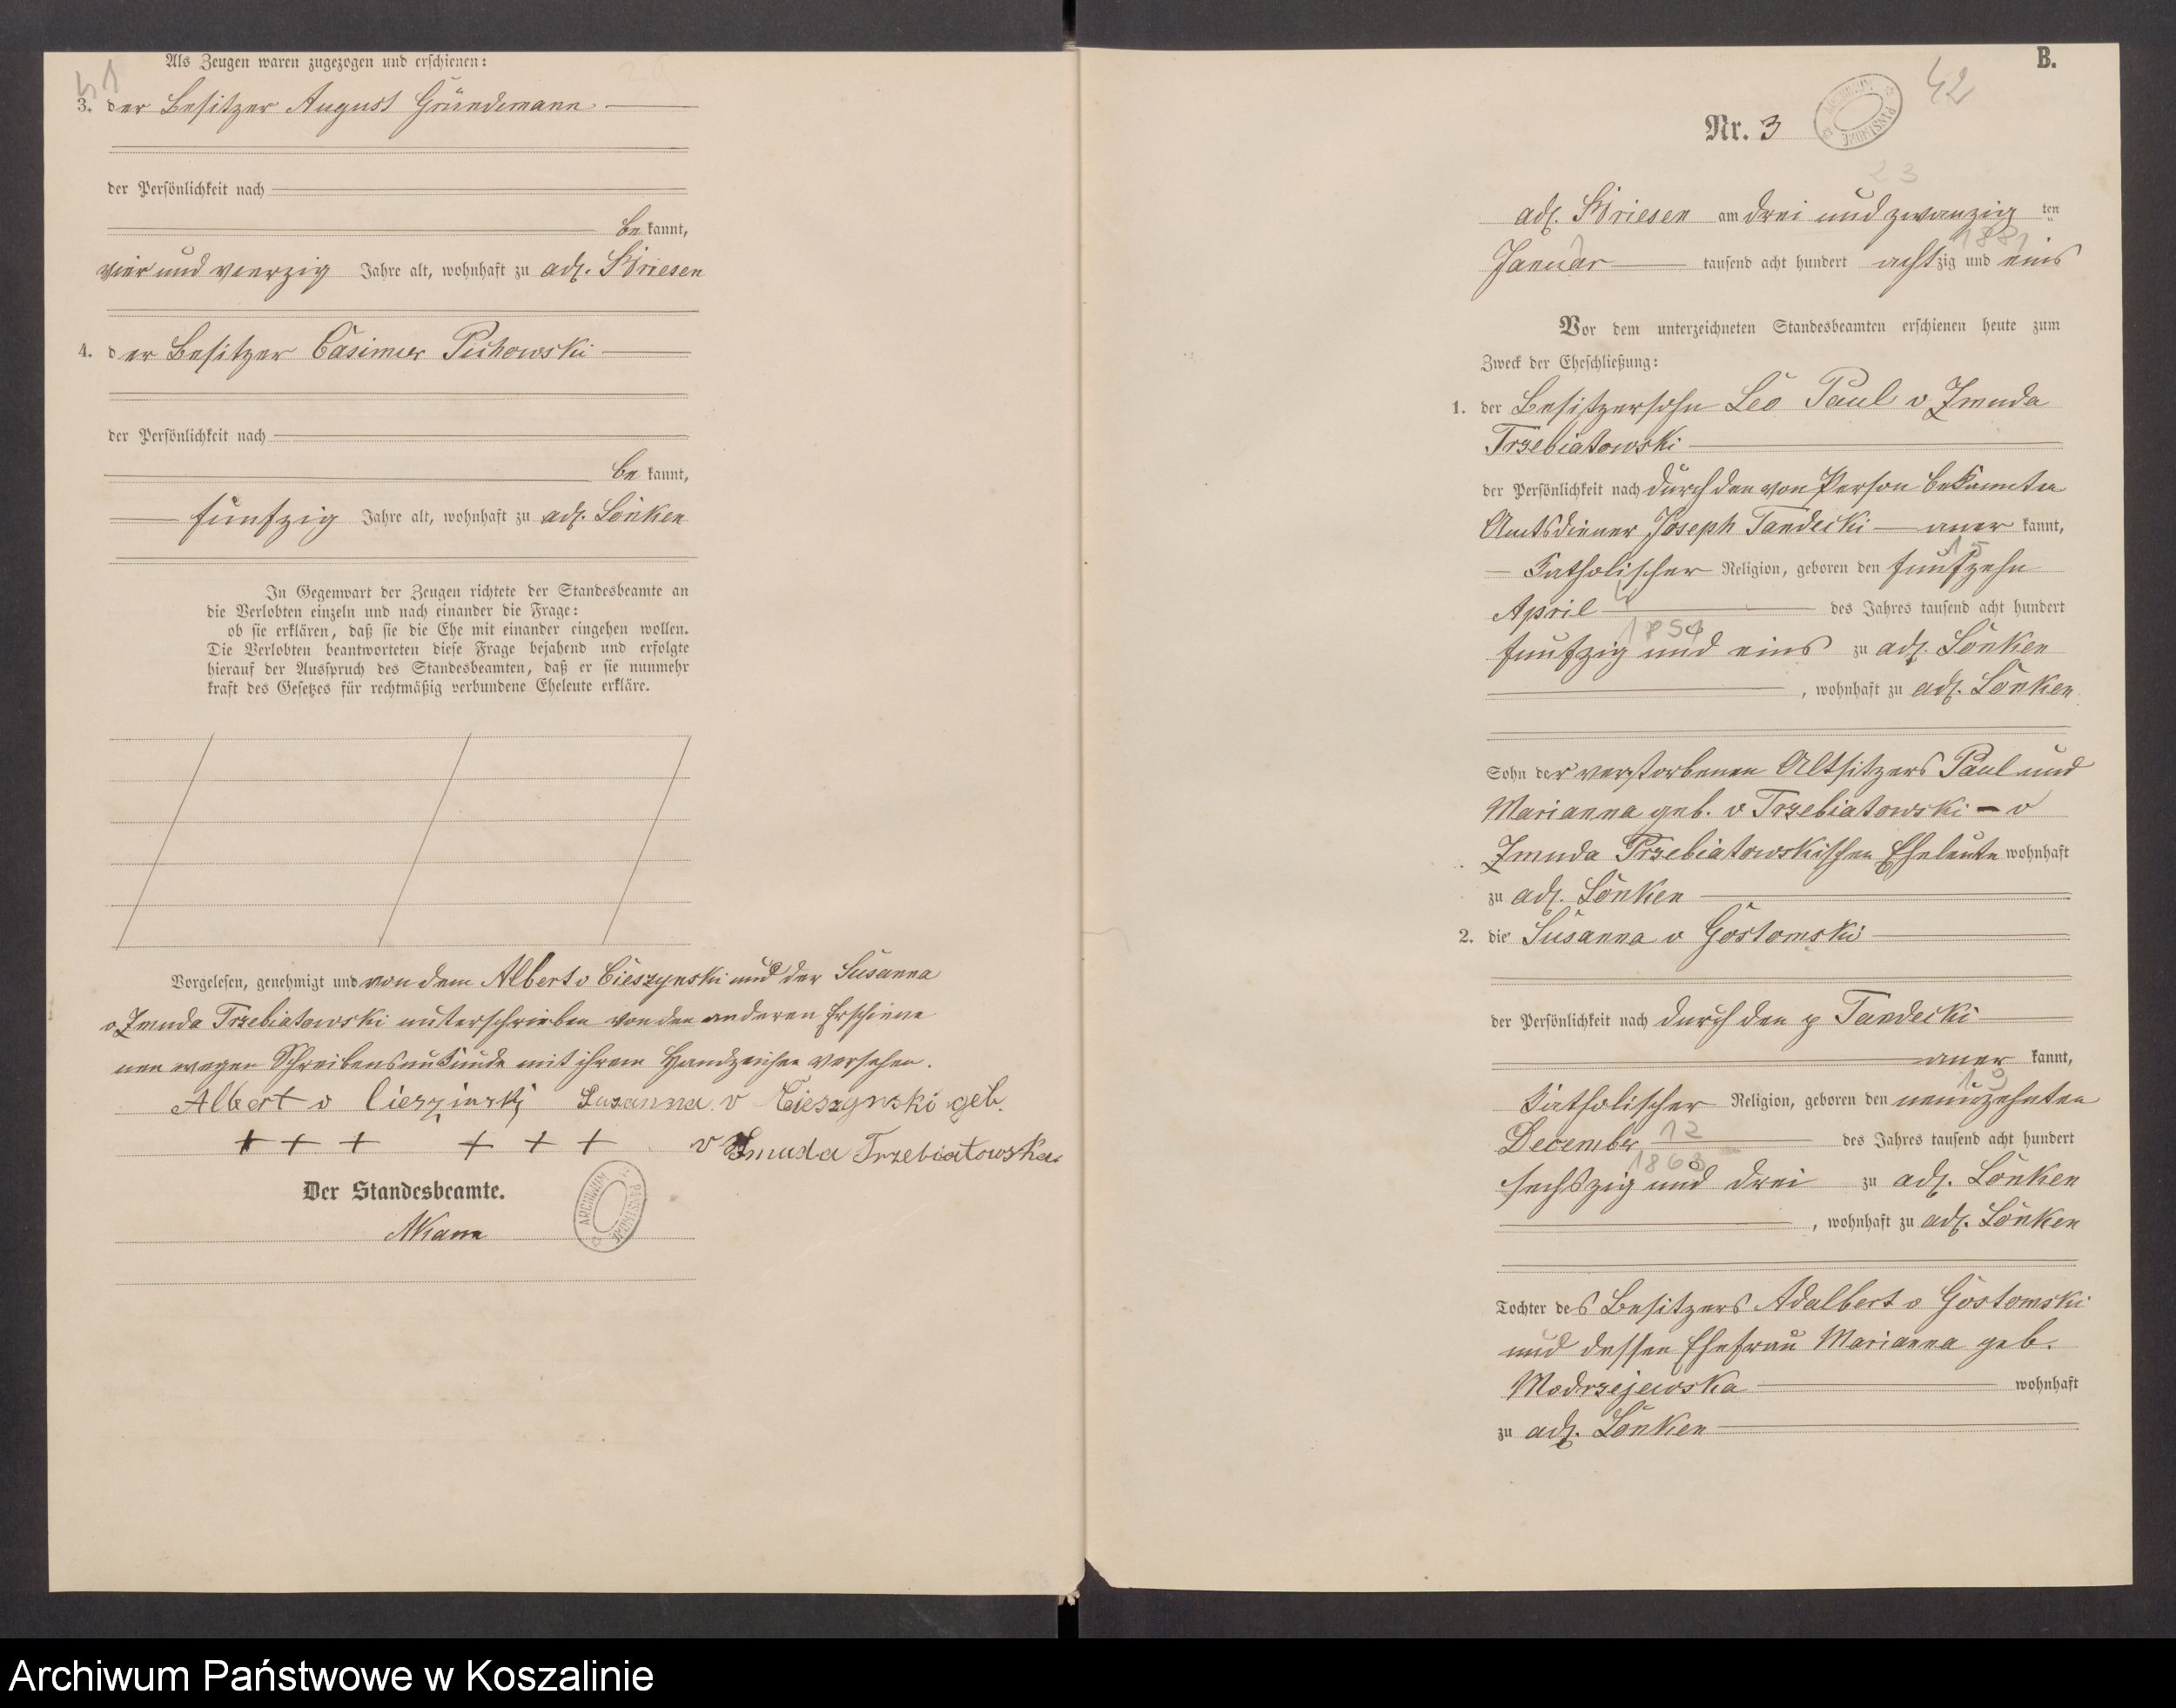 41
Als Zeugen waren zugezogen und erschienen:
3. der Besitzer August Gründemann
der Persönlichkeit nach
bekannt,
vier und vierzig Jahre alt, wohnhaft zu adl. Briesen
4. der Besitzer Casimir Pichowski
der Persönlichkeit nach
bekannt,
funfzig Jahre alt, wohnhaft zu adl. Lonken
In Gegenwart der Zeugen richtete der Standesbeamte an
die Verlobten einzeln und nach einander die Frage:
ob sie erklären, daß sie die Ehe mit einander eingehen wollen.
Die Verlobten beantworteten diese Frage bejahend und erfolgte
hierauf der Ausspruch des Standesbeamten, daß er sie nunmehr
kraft des Gesetzes für rechtmäßig verbundene Eheleute erkläre.
Vorgelesen, genehmigt und von dem Albert v Cieszynski und der Susanna
v Zmuda Trzebiatowski unterschrieben von den anderen Erschiene
nen wegen Schreibensunkunde mit ihrem Handzeichen versehen.
Albert v Cieszinski Susanna v Cieszynski geb.
+ + + + + + v Zmuda Trzebiatowska
Der Standesbeamte.
ARCHIWUM PAŃSTWOWE
B.
42
Nr. 3
ARCHIWUM PAŃSTWOWE
23
adl. Briesen am drei und zwanzig ten
1881
Januar tausend acht hundert achtzig und eins
Vor dem unterzeichneten Standesbeamten erschienen heute zum
Zweck der Eheschließung:
1. der Besitzersohn Leo Paul v Zmuda
Trzebiatowski
der Persönlichkeit nach durch den von Person bekannten
Amtsdiener Joseph Tandecki anerkannt,
15
Katholischer Religion, geboren den funfzehn
4
April des Jahres tausend acht hundert
1851
funfzig und eins zu adl. Lonken
, wohnhaft zu adl. Lonken
Sohn der verstorbenen Altsitzers Paul und
Marianna geb. v Trzebiatowski - v
Zmuda Trzebiatowskischen Eheleute wohnhaft
zu adl. Lonken
2. die Susanna v Gostomski
der Persönlichkeit nach durch den p Tandecki
anerkannt,
19
Katholischer Religion, geboren den neunzehnten
12
December des Jahres tausend acht hundert
1863
sechszig und drei zu adl. Lonken
, wohnhaft zu adl. Lonken
Tochter des Besitzers Adalbert v Gostomski
und dessen Ehefrau Marianna geb.
Modrzejewska wohnhaft
zu adl. Lonken
Archiwum Państwowe w Koszalinie